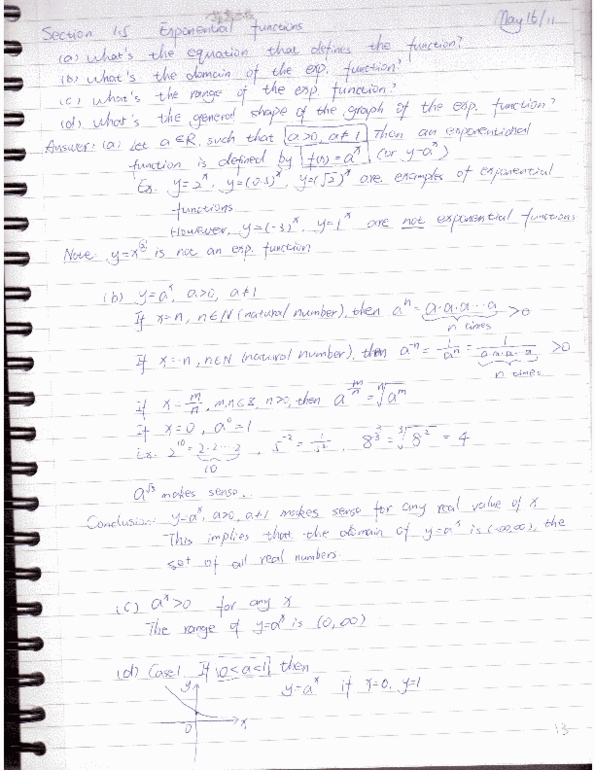 Section 1.5 Exponential functions May 16/11
(a) What's the equation that defines the function?
(b) What's the domain of the exp. function?
(c) What's the range of the exp. function?
(d) What's the general shape of the graph of the exp. function?
Answer: (a) Let a∈R, such that a>0, a≠1 Then an exponential
function is defined by f(x)=a^x (or y=a^x)
Ex. y=2^x, y=(0.3)^x, y=(√2)^x are examples of exponential
functions
However, y=(-3)^x, y=1^x are not exponential functions
Note: y=x^2 is not an exp. function
(b) y=a^x, a>0, a≠1
If x=n, n∈N (natural number), then a^n = a·a·a···a >0
n times
If x=-n, n∈N (natural number), then a^-n = 1/a^n = 1/a·a·a··a >0
n times
if x=m/n, m,n∈Z, n>0, then a^m/n = n√a^m
If x=0, a^0=1
i.x. 2^10 = 2·2···2, 5^-2 = 1/5^2, 8^2/3 = 3√8^2 = 4
10
a^√3 makes sense.
Conclusion: y=a^x, a>0, a≠1 makes sense for any real value of x
This implies that the domain of y=a^x is (-∞,∞), the
set of all real numbers.
(c) a^x>0 for any x
The range of y=a^x is (0, ∞)
(d) Case1. If 0<a<1 then
y y=a^x if x=0, y=1
0 x
13